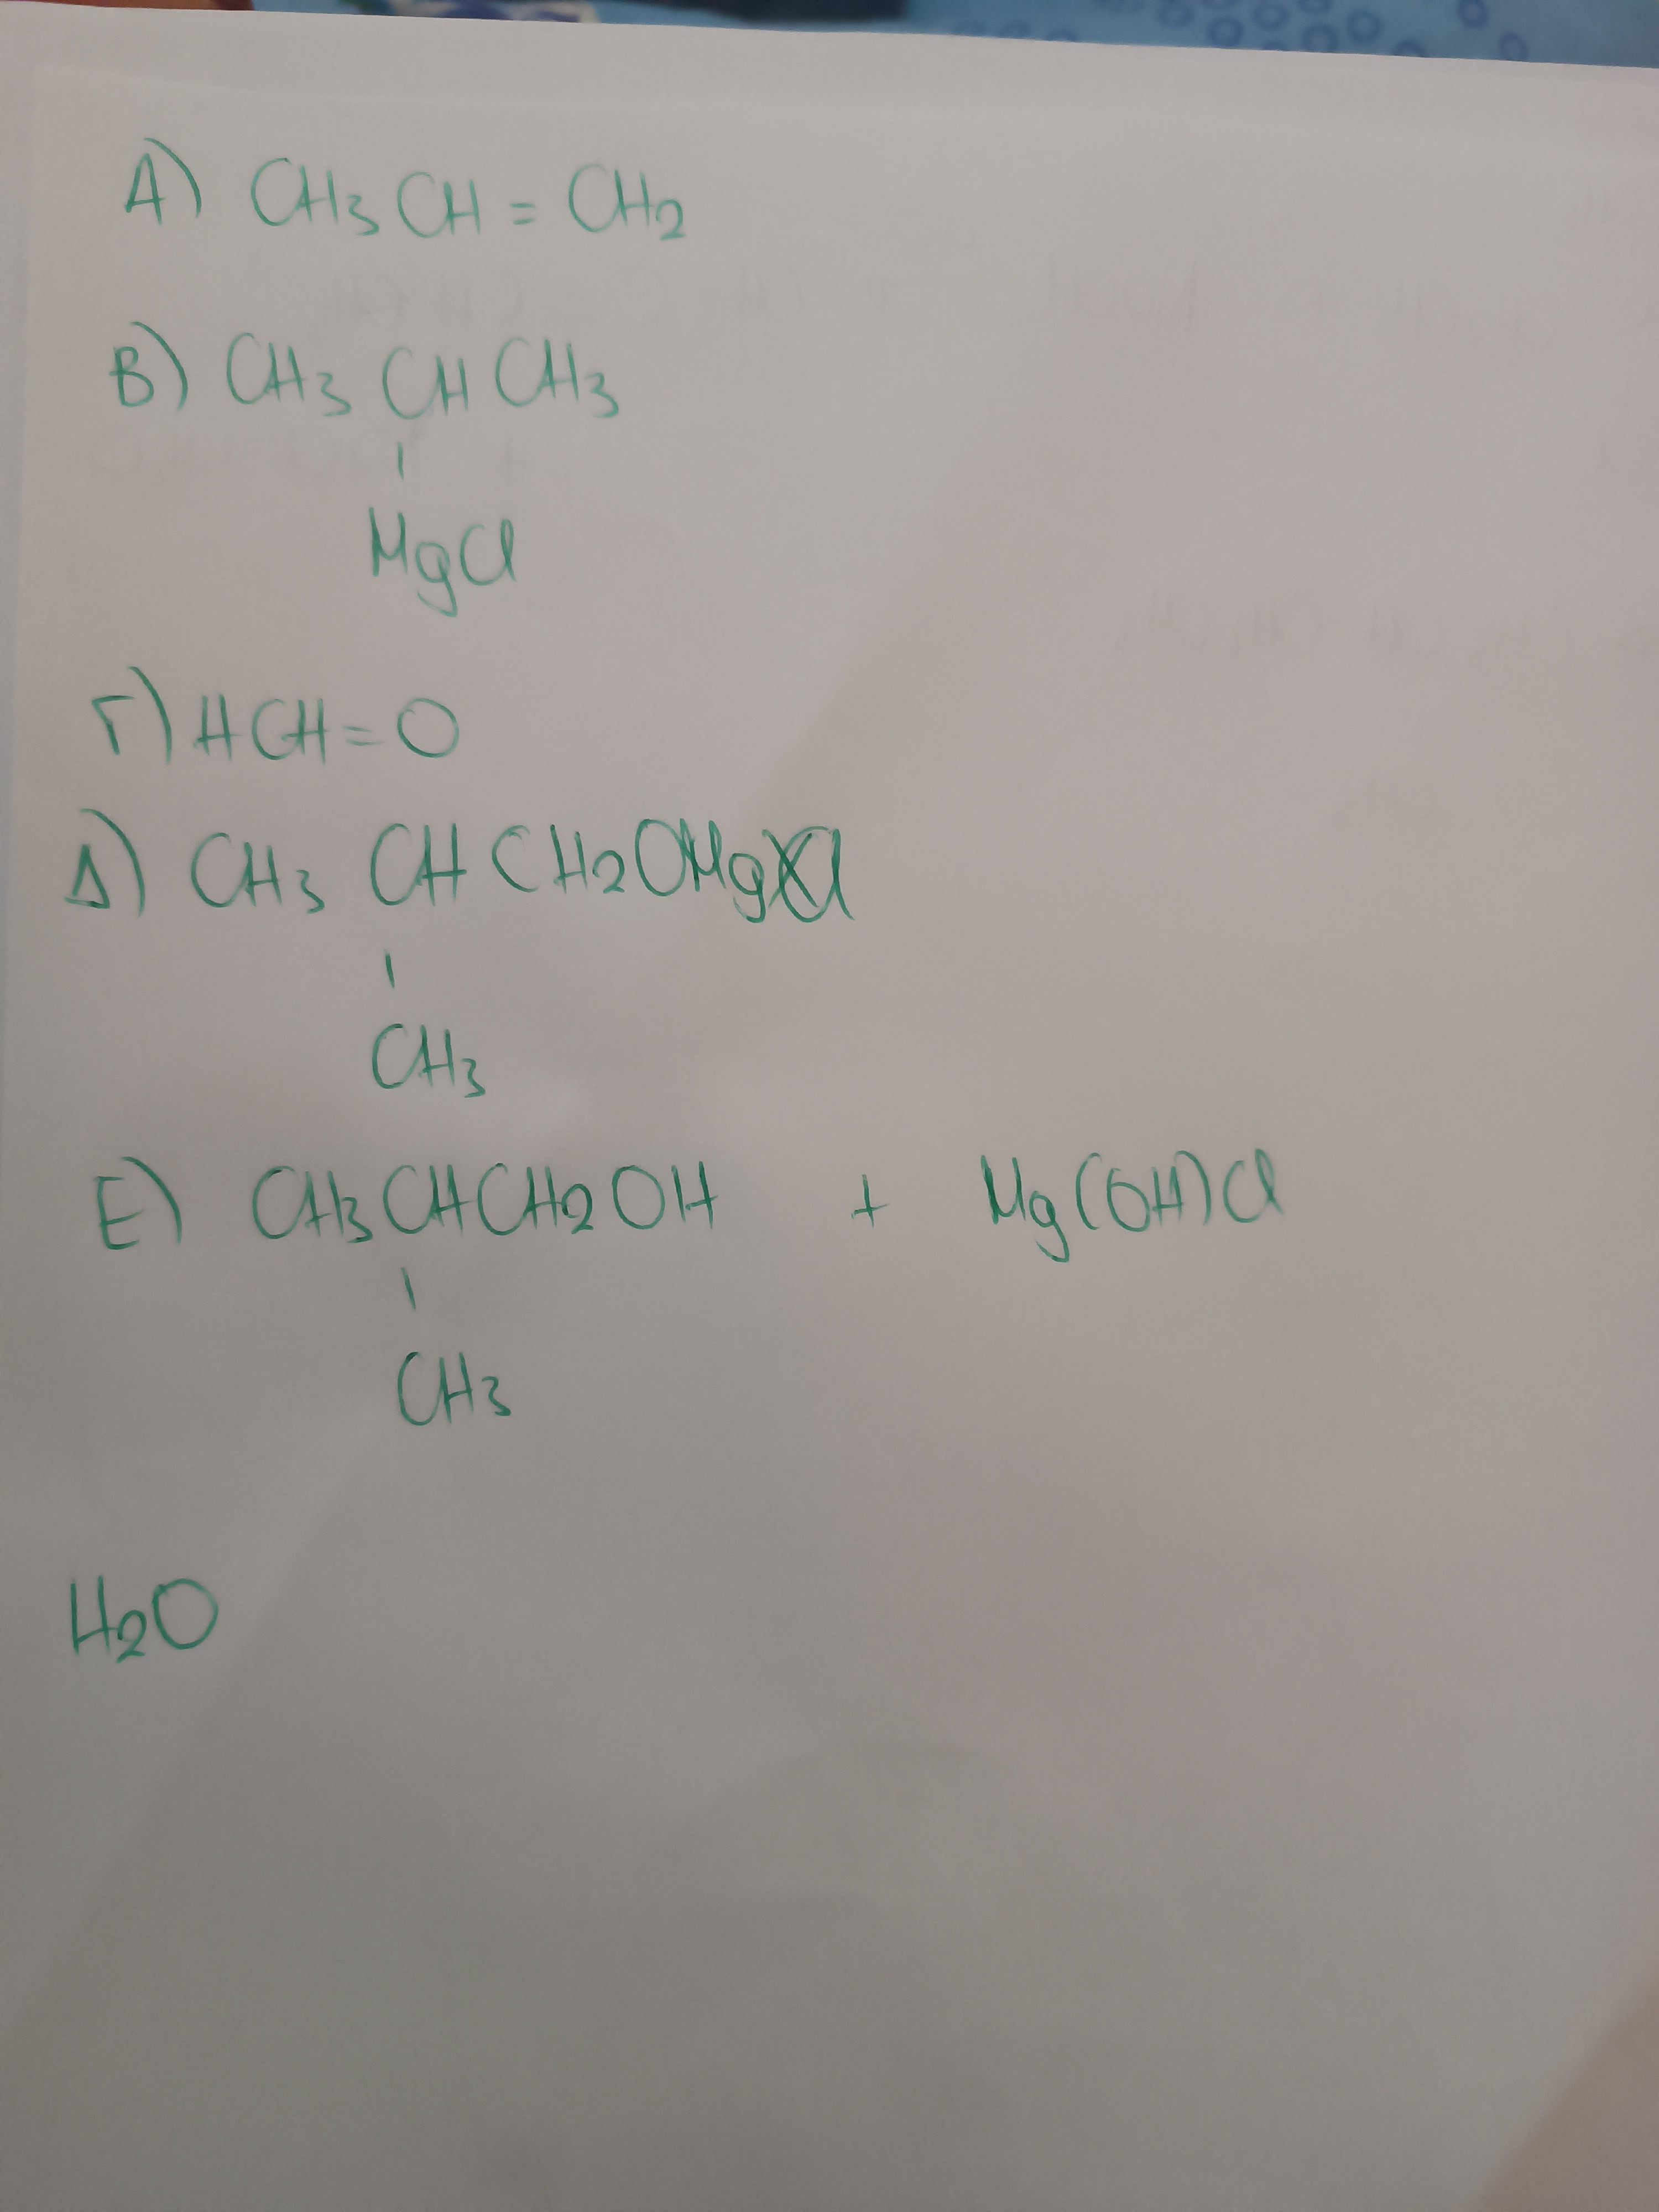 A) CH3CH=CH2
B) CH3CHCH3
|
MgCl
Γ) HCH=O
Δ) CH3CHCH2OMgCl
|
CH3
E) CH3CHCH2OH + Mg(OH)Cl
|
CH3
H2O